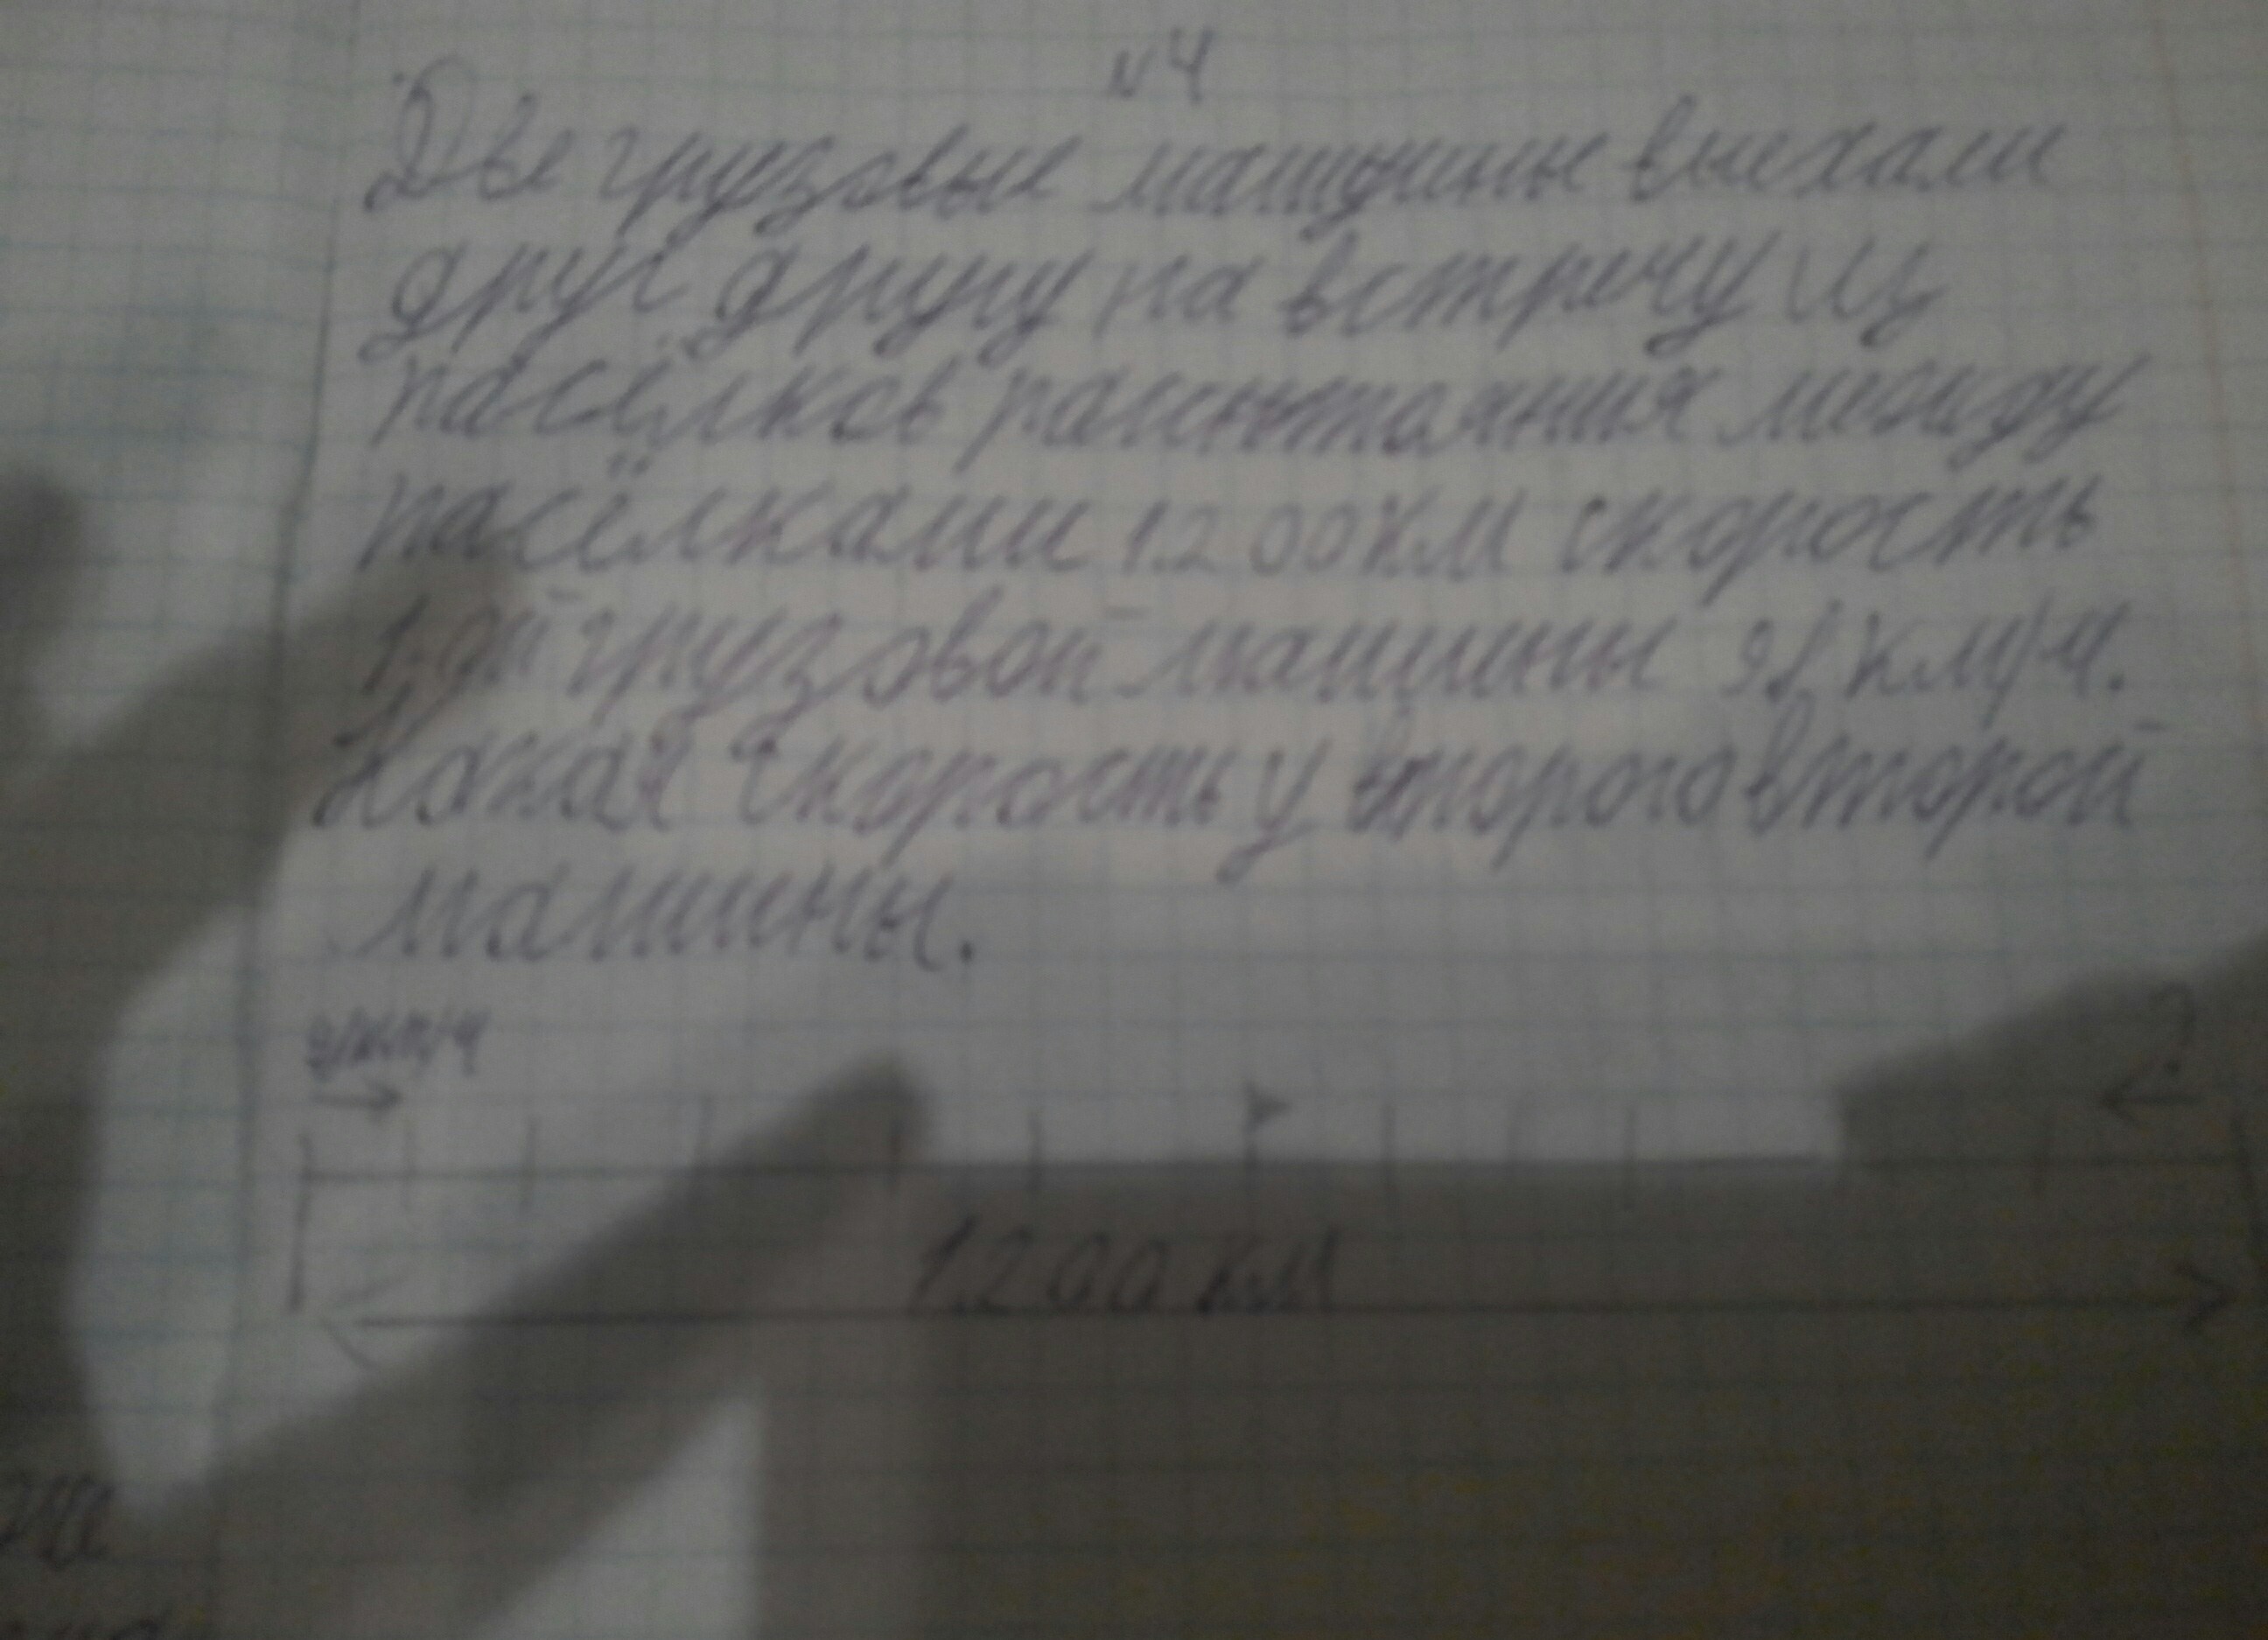 №4
Две грузовые машины выехали
друг другу на встречу из
пасёлков расстояния между
пасёлками 1200 км скорость
1-ой грузовой машины 91 км/ч.
Какая скорость у второго второй
машины.
91км/ч
?
1200 км